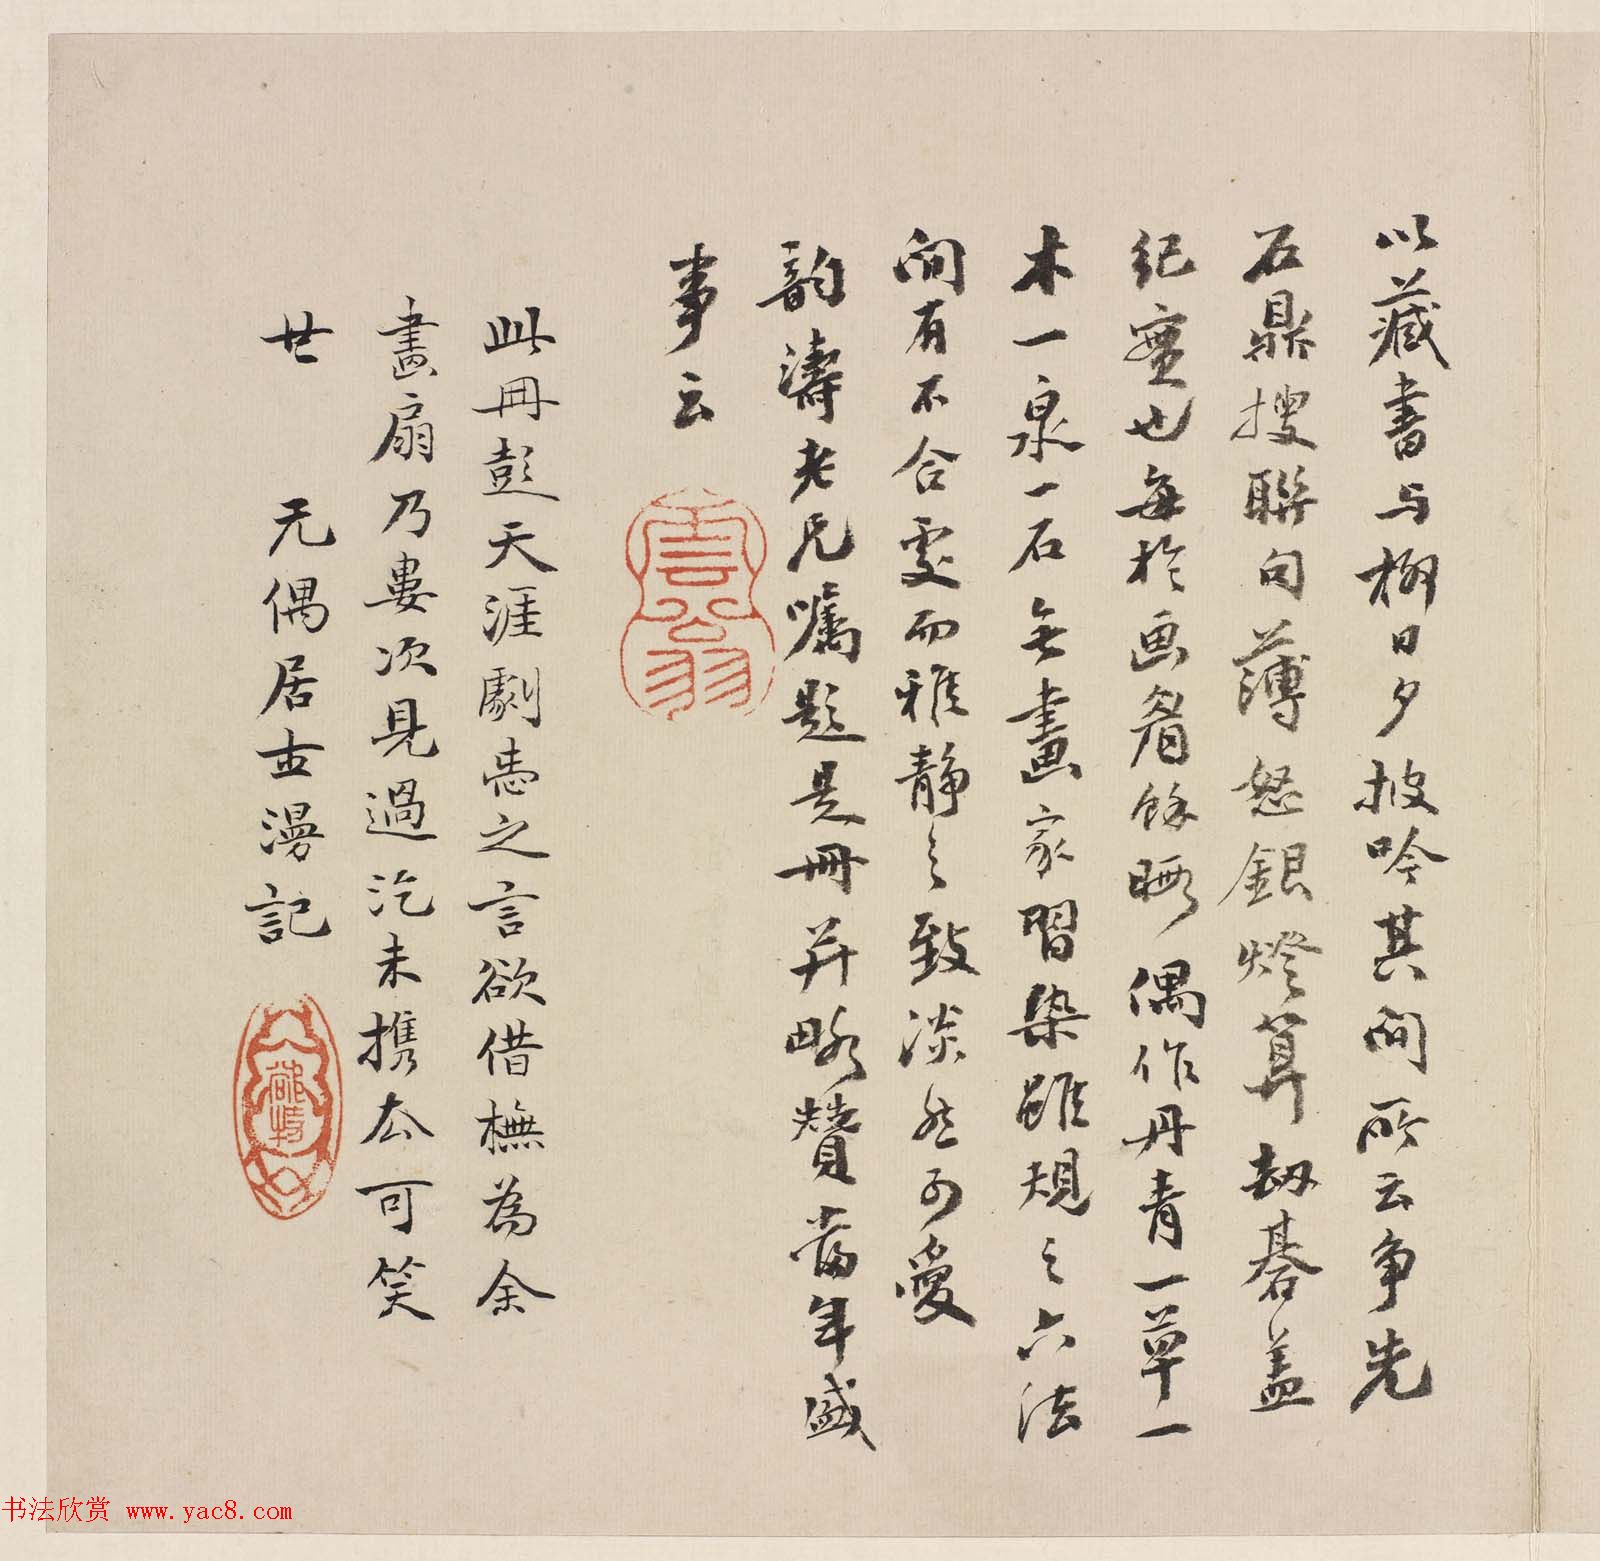 以藏書与栩日夕披吟其间所云争先
石鼎搜聯句薄怒銀燈算劫碁盖
纪實也每於画眉餘暇偶作丹青一草一
木一泉一石无畫家習染雖規之六法
间有不合處而雅静之致淡然可愛
韵濤老兄囑題是冊并略贊當年盛
事云
雲翁
此冊彭天涯劇恚之言欲借橅為余
畫扇乃婁次見過汔未携去可笑
廿 无偶居士漫記
书法欣赏 www.yac8.com